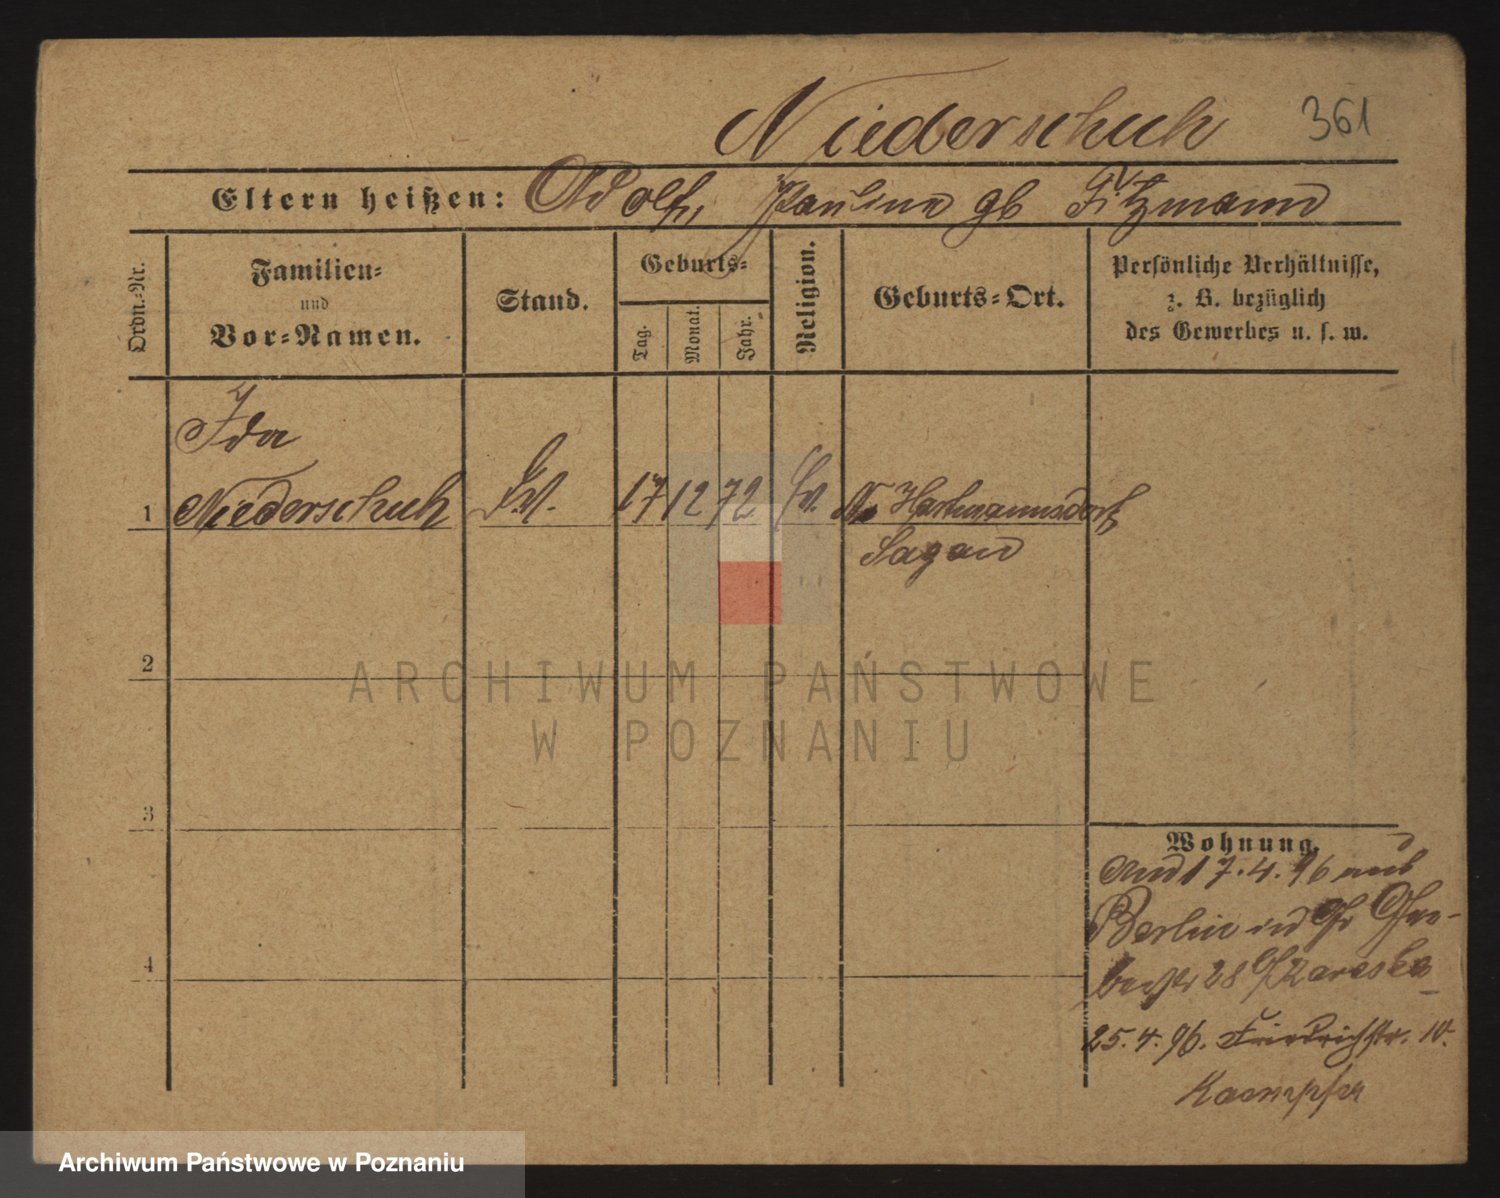 Niederschuh 361
Eltern heißen: Adolf, Pauline gb Fitzmann
Ordn.-Nr.
Familien-
und
Vor-Namen.
Stand.
Geburts-
Tag.
Monat.
Jahr.
Religion.
Geburts-Ort.
Persönliche Verhältnisse,
z. B. bezüglich
des Gewerbes u. s. w.
Ida
1 Niederschuh 17 12 72 Ev. Hartmannsdorf
Sagan
2
3
4
Wohnung.
17.4.96 aus
Berlin in Gr Ger-
berstr 28
25.4.96. Friedrichstr. 10.
Kaempfer
ARCHIWUM PAŃSTWOWE
W POZNANIU
Archiwum Państwowe w Poznaniu